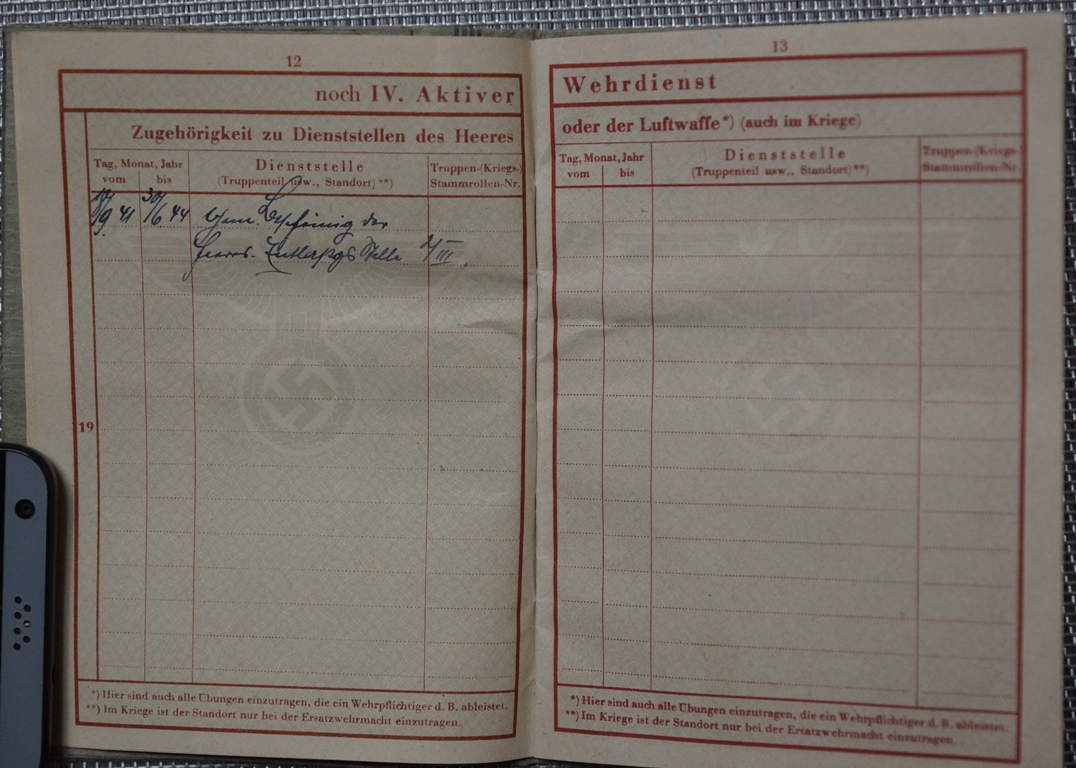 12
noch IV. Aktiver
Zugehörigkeit zu Dienststellen des Heeres
Tag, Monat, Jahr
vom bis
Dienststelle
(Truppenteil usw., Standort)**)
Truppen-(Kriegs-)
Stammrollen-Nr.
9. 41 30/6. 44 der
Heeres-
19
*) Hier sind auch alle Übungen einzutragen, die ein Wehrpflichtiger d. B. ableistet.
**) Im Kriege ist der Standort nur bei der Ersatzwehrmacht einzutragen.
13
Wehrdienst
oder der Luftwaffe*) (auch im Kriege)
Tag, Monat, Jahr
vom bis
Dienststelle
(Truppenteil usw., Standort)**)
Truppen-(Kriegs-)
Stammrollen-Nr.
*) Hier sind auch alle Übungen einzutragen, die ein Wehrpflichtiger d. B. ableistet.
**) Im Kriege ist der Standort nur bei der Ersatzwehrmacht einzutragen.